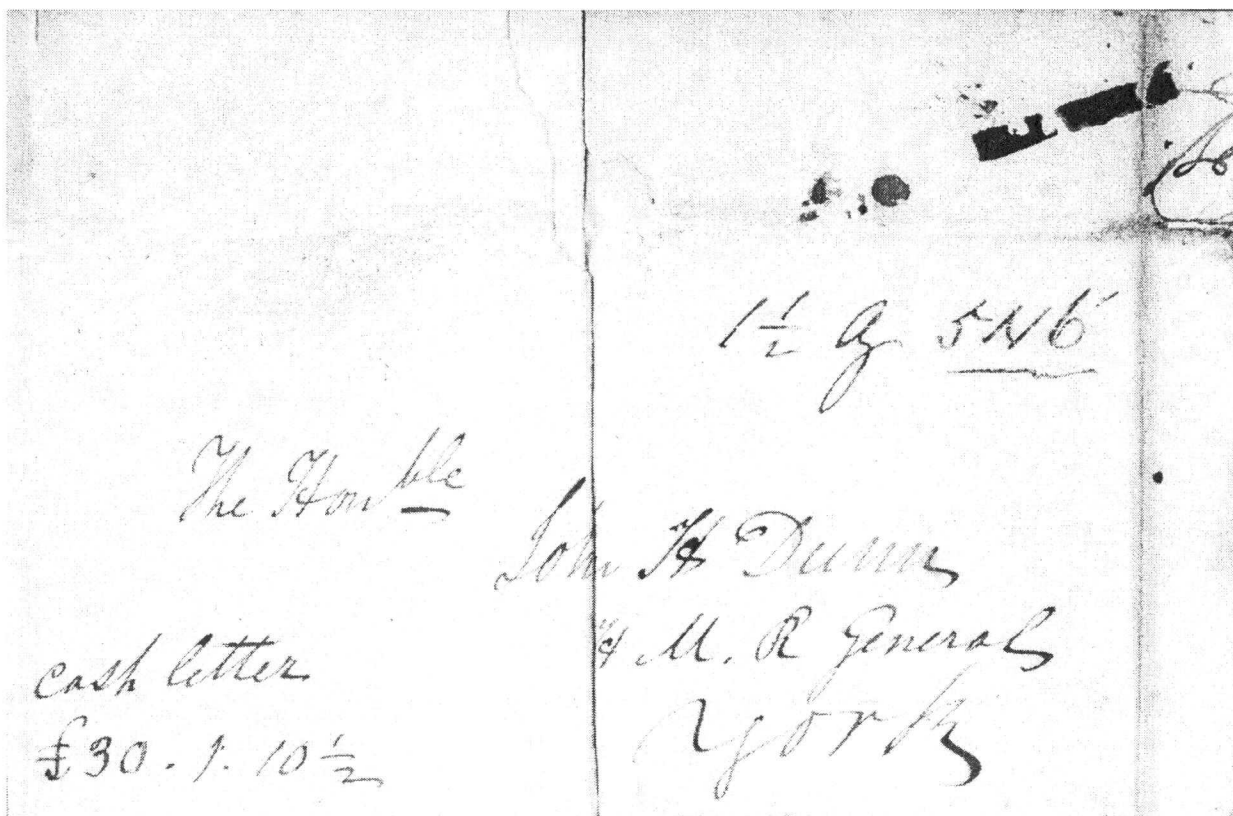 1 1/2 oz 5N6
The Honble
John H Dunn
H M. R General
York
cash letter
£30. 1. 10 1/2